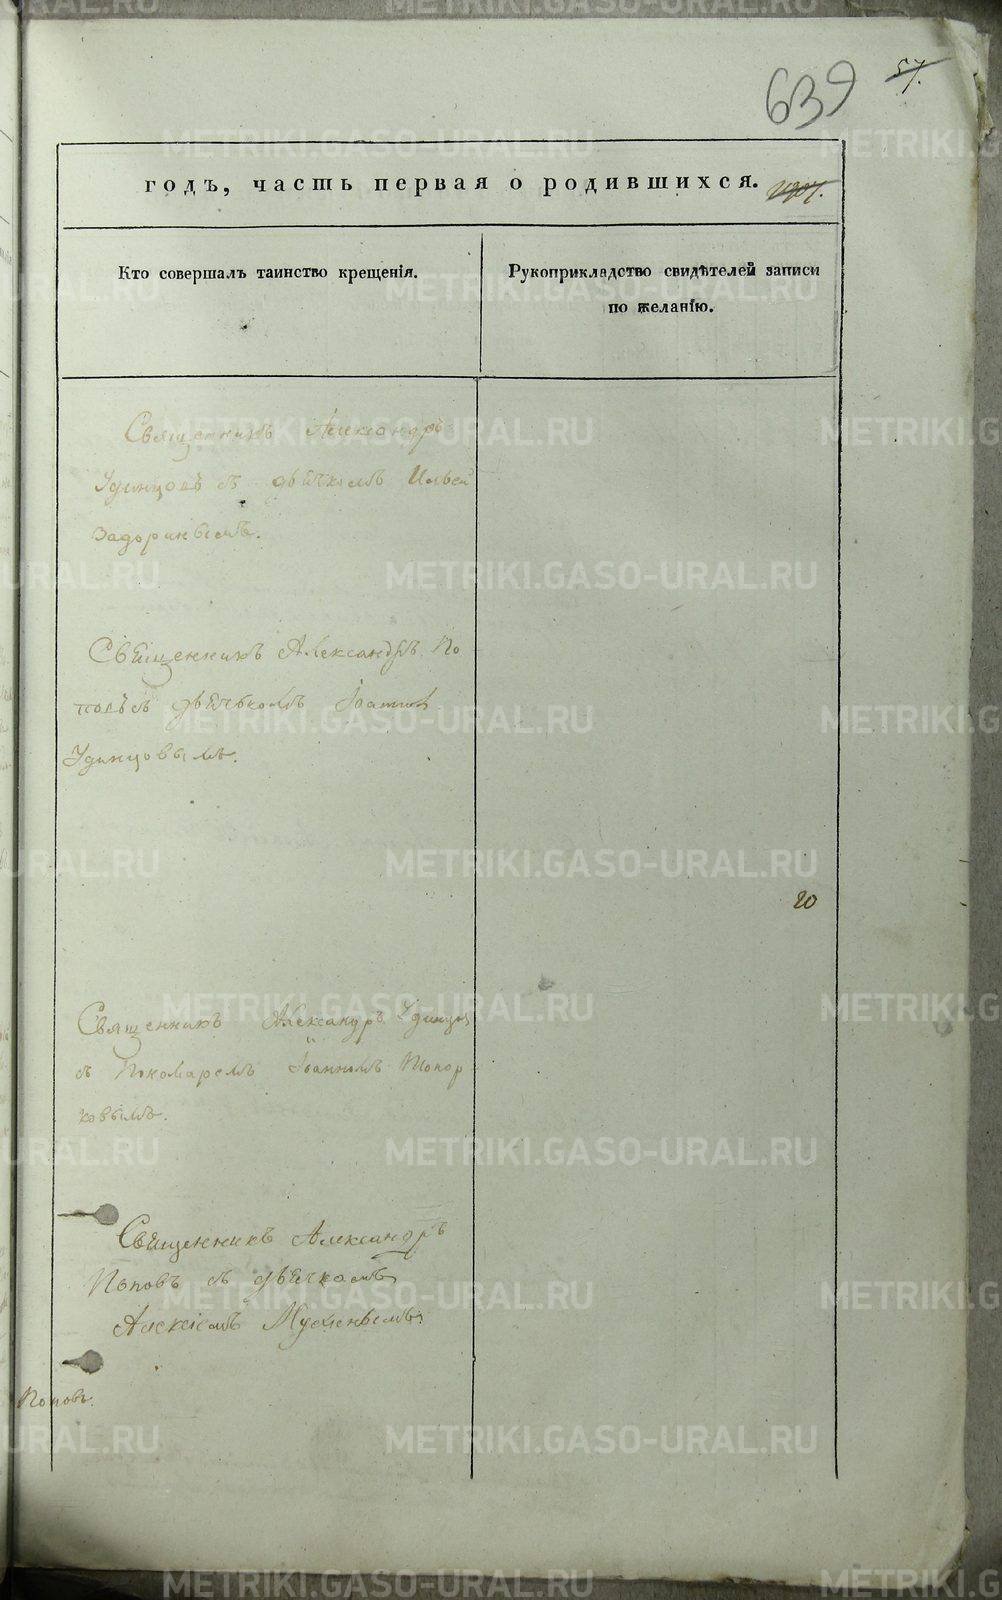 639 57.
годъ, часть первая о родившихся.
Кто совершалъ таинство крещенія.
Рукоприкладство свидѣтелей записи
по желанію.
Священникъ Александръ
Удинцовъ съ дьячкомъ Ильей
Задоринымъ.
Священникъ Александръ По
повъ съ дьячькомъ Іоанном
Удинцовымъ.
20
Священникъ Александръ Удинцов
съ Пономаремъ Іоанномъ Топор
ковымъ.
Священникъ Александръ
Поповъ съ дьячкомъ
Алексіемъ
Поповъ.
METRIKI.GASO-URAL.RU